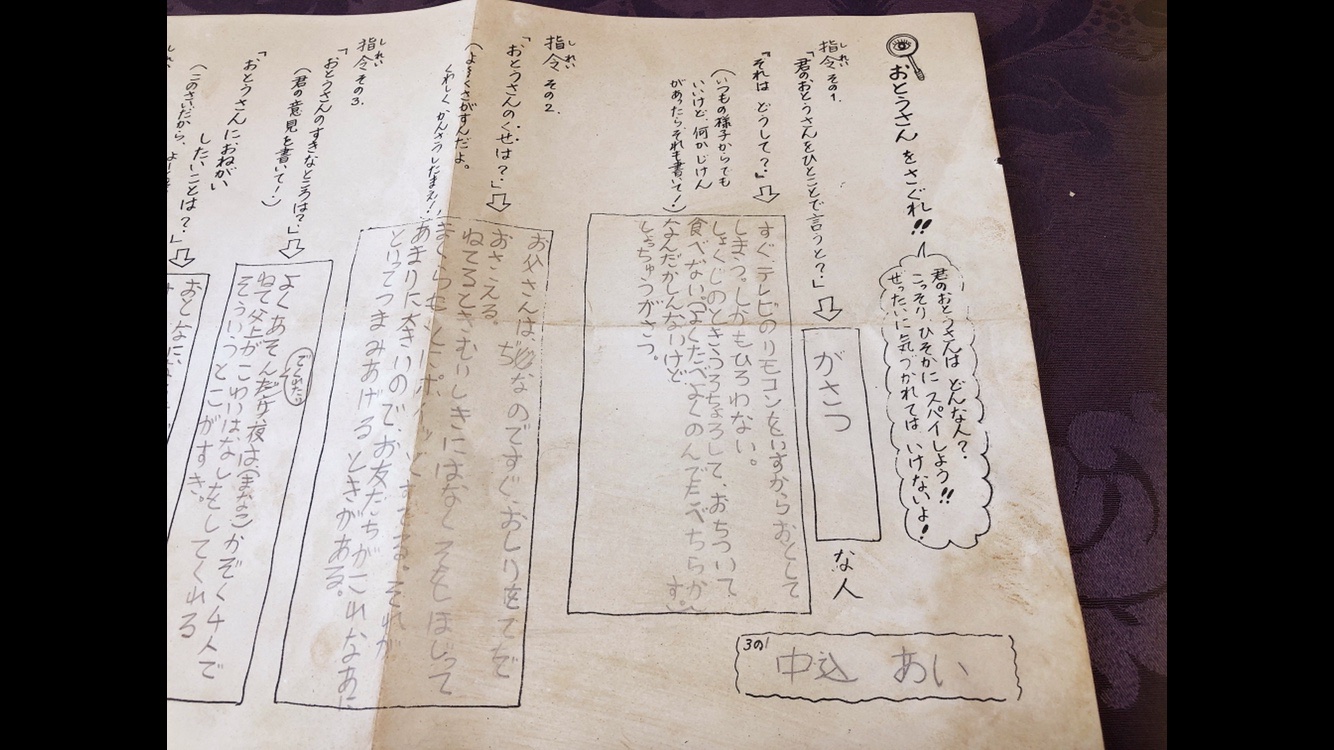 おとうさんをさぐれ!!
君のおとうさんは どんな人?
こっそり ひそかに スパイしよう!!
ぜったいに気づかれては いけないよ!
3の1
中込 あい
指令 その1.
しれい
「君のおとうさんをひとことで言うと?」
がさつ
な人
「それは どうして?」
(いつもの様子からでも
いいけど、何かじけん
があったらそれも書いて!)
すぐ、テレビのリモコンをいすからおとして
しまう。しかもひろわない。
しょくじのときうろちょろして、おちついて
食べない。(よくたべよくのんでたべちらかす。)
なんだかしんないけど
しょっちゅうがさつ。
指令 その2.
しれい
「おとうさんのくせは?」
(よーくさがすんだよ。
くわしく、かんさつしたまえ!)
お父さんは、なのですぐ、おしりをてで
おさえる。
ねてるときむいしきにはなくそをほじって
ポイッとすてる。それが
あまりに大きいので、お友だちがこれなあに
といってつまみあげるときがある。
指令 その3.
しれい
「おとうさんのすきなところは?」
(君の意見を書いて!)
よくあそんでくれたり
ねて父上がこわいはなしをしてくれる
そういうとこがすき。
「おとうさんにおねがい
したいことは?」
(このさいだから、
おとなに